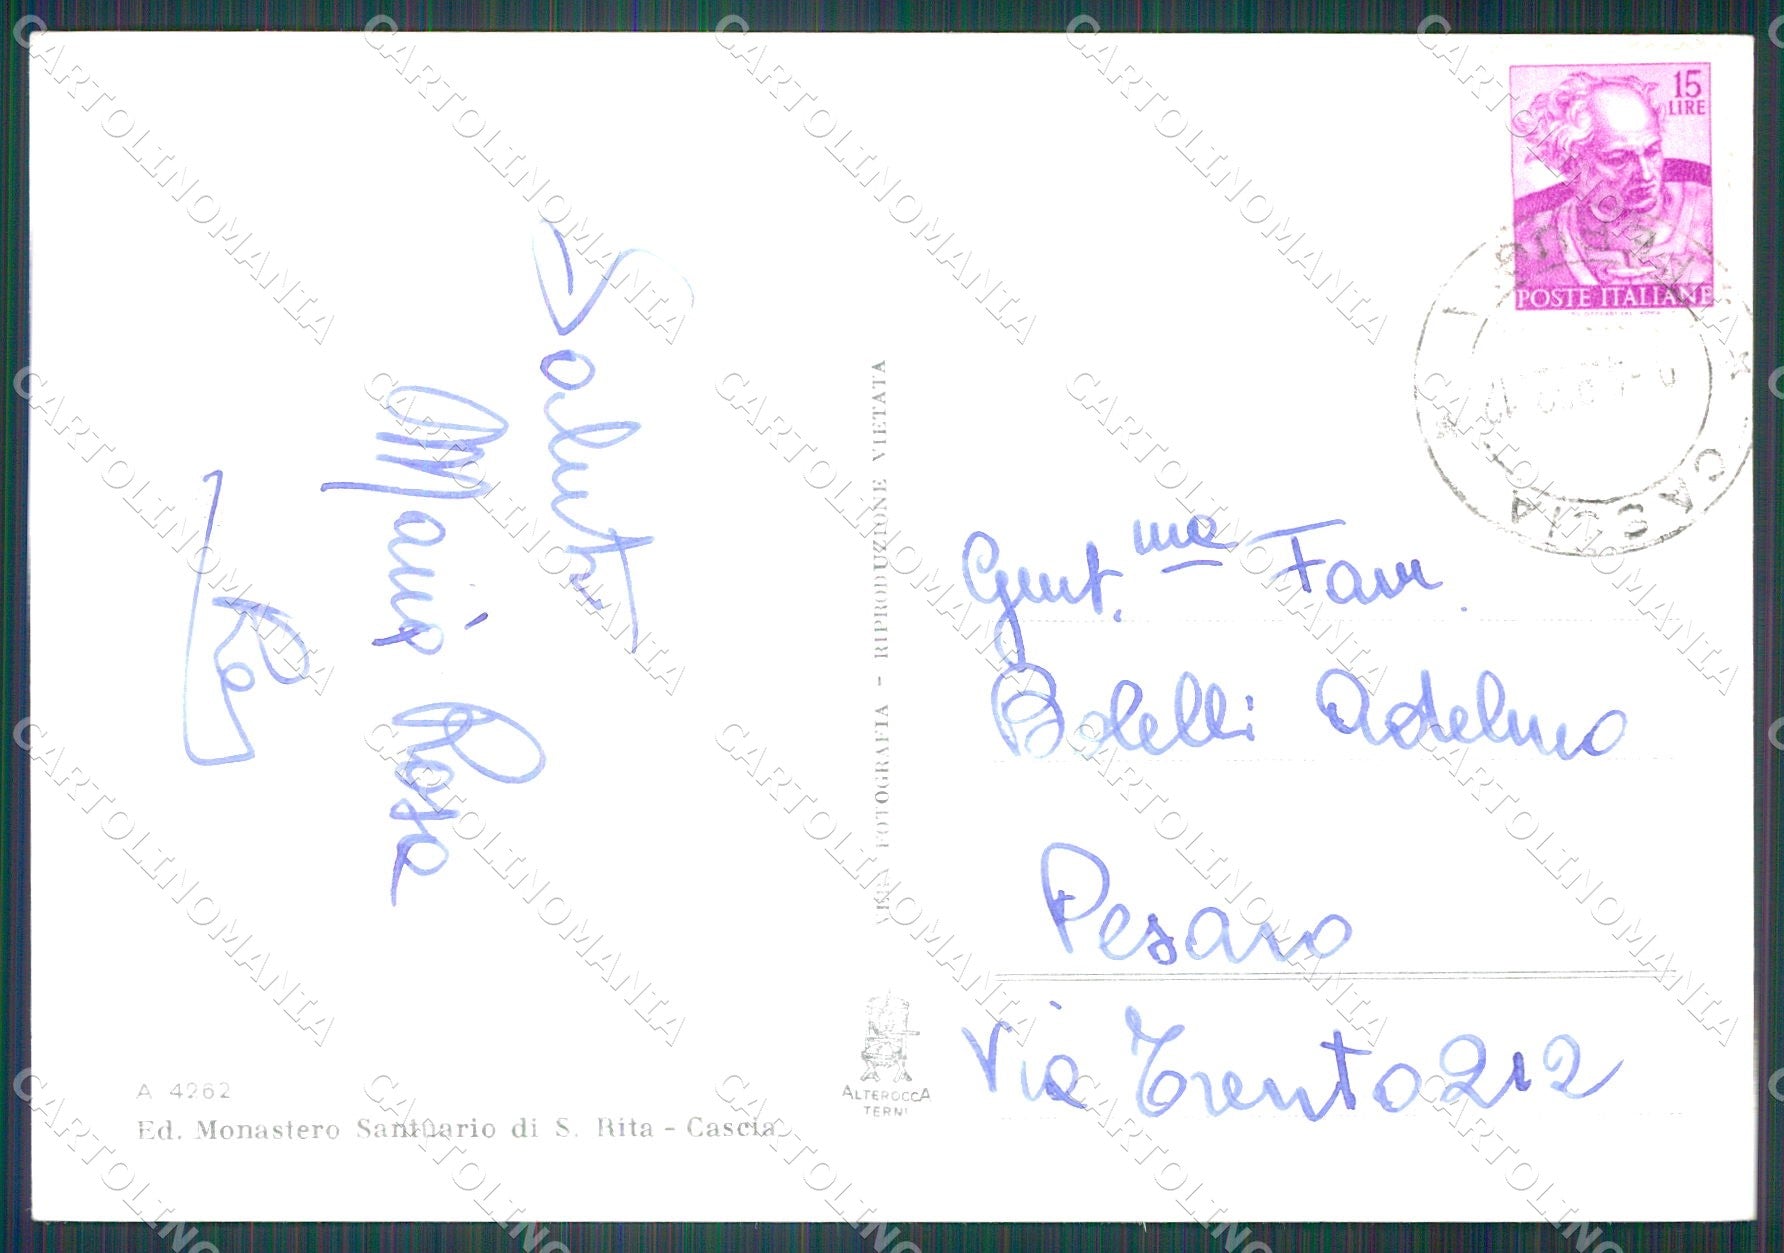 15
LIRE
POSTE ITALIANE
CASCIA
Saluti
Maria Rosa
VERA FOTOGRAFIA - RIPRODUZIONE VIETATA
Gent.ma Fam.
Bolelli Adelmo
Pesaro
Via Trento 212
A 4262
Ed. Monastero Santuario di S. Rita - Cascia
ALTEROCCA
TERNI
CARTOLINOMANIA